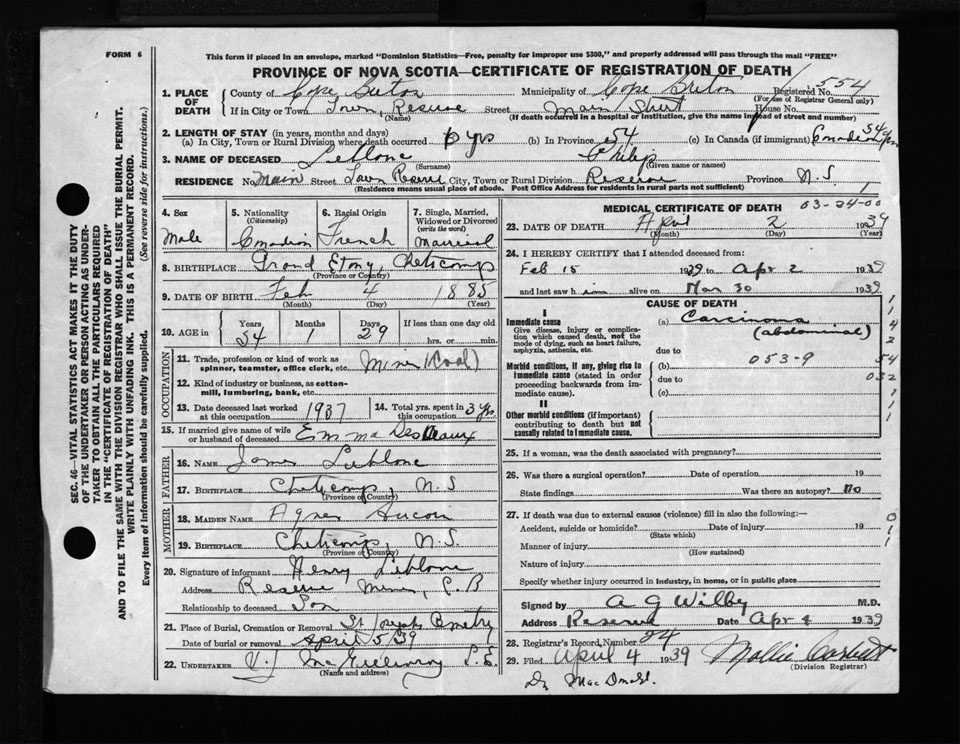 FORM 6
This form if placed in an envelope, marked "Dominion Statistics—Free, penalty for improper use $300," and properly addressed will pass through the mail "FREE"
PROVINCE OF NOVA SCOTIA—CERTIFICATE OF REGISTRATION OF DEATH
SEC. 46—VITAL STATISTICS ACT MAKES IT THE DUTY
OF THE UNDERTAKER OR PERSON ACTING AS UNDER-
TAKER TO OBTAIN ALL THE PARTICULARS REQUIRED
IN THE "CERTIFICATE OF REGISTRATION OF DEATH"
AND TO FILE THE SAME WITH THE DIVISION REGISTRAR WHO SHALL ISSUE THE BURIAL PERMIT.
WRITE PLAINLY WITH UNFADING INK. THIS IS A PERMANENT RECORD.
Every item of information should be carefully supplied. (See reverse side for instructions.)
1. PLACE OF DEATH County of Cape Breton Municipality of Cape Breton Registered No. 554
(For use of Registrar General only)
If in City or Town Town, Reserve Street Main Street House No.
(Name) (If death occurred in a hospital or institution, give the name instead of street and number)
2. LENGTH OF STAY (in years, months and days)
(a) In City, Town or Rural Division where death occurred yrs (b) In Province 54 (c) In Canada (if immigrant) 54 Canadian
3. NAME OF DECEASED Leblanc Philip
(Surname) (Given name or names)
RESIDENCE No. Main Street Town Reserve City, Town or Rural Division Reserve Province N.S. 1
(Residence means usual place of abode. Post Office Address for residents in rural parts not sufficient)
4. Sex Male
5. Nationality (Citizenship) Canadian
6. Racial Origin French
7. Single, Married, Widowed or Divorced (write the word) Married
8. BIRTHPLACE Grand Etang, Cheticamp
(Province or Country)
9. DATE OF BIRTH Feb 4 1885
(Month) (Day) (Year)
10. AGE in Years Months Days If less than one day old
54 1 29 hrs. or min.
OCCUPATION
11. Trade, profession or kind of work as spinner, teamster, office clerk, etc. Miner (Coal)
12. Kind of industry or business, as cotton-mill, lumbering, bank, etc.
13. Date deceased last worked at this occupation 1937
14. Total yrs. spent in this occupation 3 yrs
15. If married give name of wife or husband of deceased Emma DesVeaux
FATHER
16. NAME James Leblanc
17. BIRTHPLACE Cheticamp, N.S
(Province or Country)
MOTHER
18. MAIDEN NAME Agnes Aucoin
19. BIRTHPLACE Cheticamp, N.S.
(Province or Country)
20. Signature of informant Henry Leblanc
Address Reserve Mines, C.B
Relationship to deceased Son
21. Place of Burial, Cremation or Removal St Josephs Cemetry
Date of burial or removal April 5/39
22. UNDERTAKER V.J
(Name and address)
MEDICAL CERTIFICATE OF DEATH 03-24-00
23. DATE OF DEATH April 2 1939
(Month) (Day) (Year)
24. I HEREBY CERTIFY that I attended deceased from:
Feb 15 1939 to Apr 2 1939
and last saw him alive on Mar 30 1939
CAUSE OF DEATH
I
Immediate cause
Give disease, injury or complication which caused death, not the mode of dying, such as heart failure, asphyxia, asthenia, etc.
(a) Carcinoma
(abdominal)
due to
Morbid conditions, if any, giving rise to immediate cause (stated in order proceeding backwards from immediate cause).
(b) 053-9
due to
(c)
II
Other morbid conditions (if important) contributing to death but not causally related to immediate cause.
1
1
4
2
54
032
1
1
1
25. If a woman, was the death associated with pregnancy?
26. Was there a surgical operation? Date of operation 19
State findings Was there an autopsy? No
27. If death was due to external causes (violence) fill in also the following:—
Accident, suicide or homicide? Date of injury 19
(State which)
Manner of injury
(How sustained)
Nature of injury
Specify whether injury occurred in industry, in home, or in public place
0
1
1
Signed by A G Wilby M.D.
Address Reserve Date Apr 4 1939
28. Registrar's Record Number 24
29. Filed April 4 1939 Mollie
(Division Registrar)
Dr MacDonald.